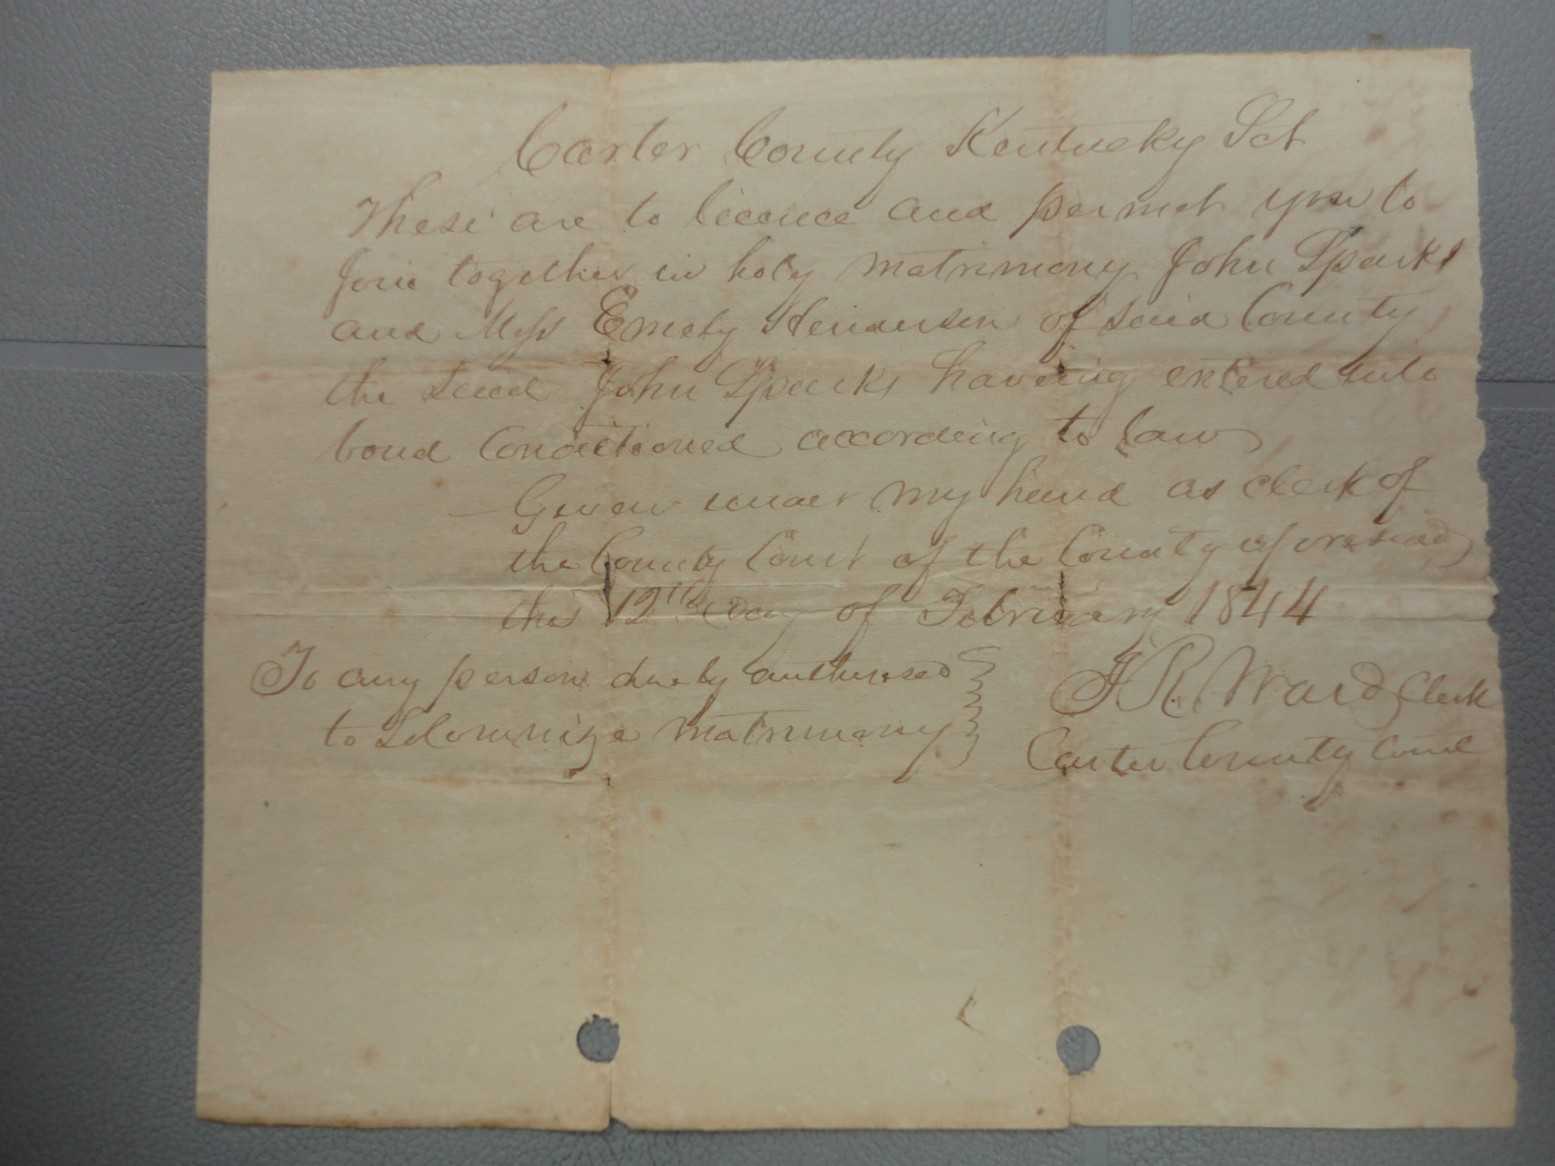 Carter County Kentucky Sct
These are to licence and permit you to
join together in holy matrimony John Sparks
and Miss Emely Henderson of said County
the said John Sparks having entered into
bond Conditioned according to law
Given under my hand as clerk of
the County Court of the County aforesaid
this 12th day of February 1844
To any person duely authorised
to Solemnize matrimony
J. R. Ward Clerk
Carter County Court